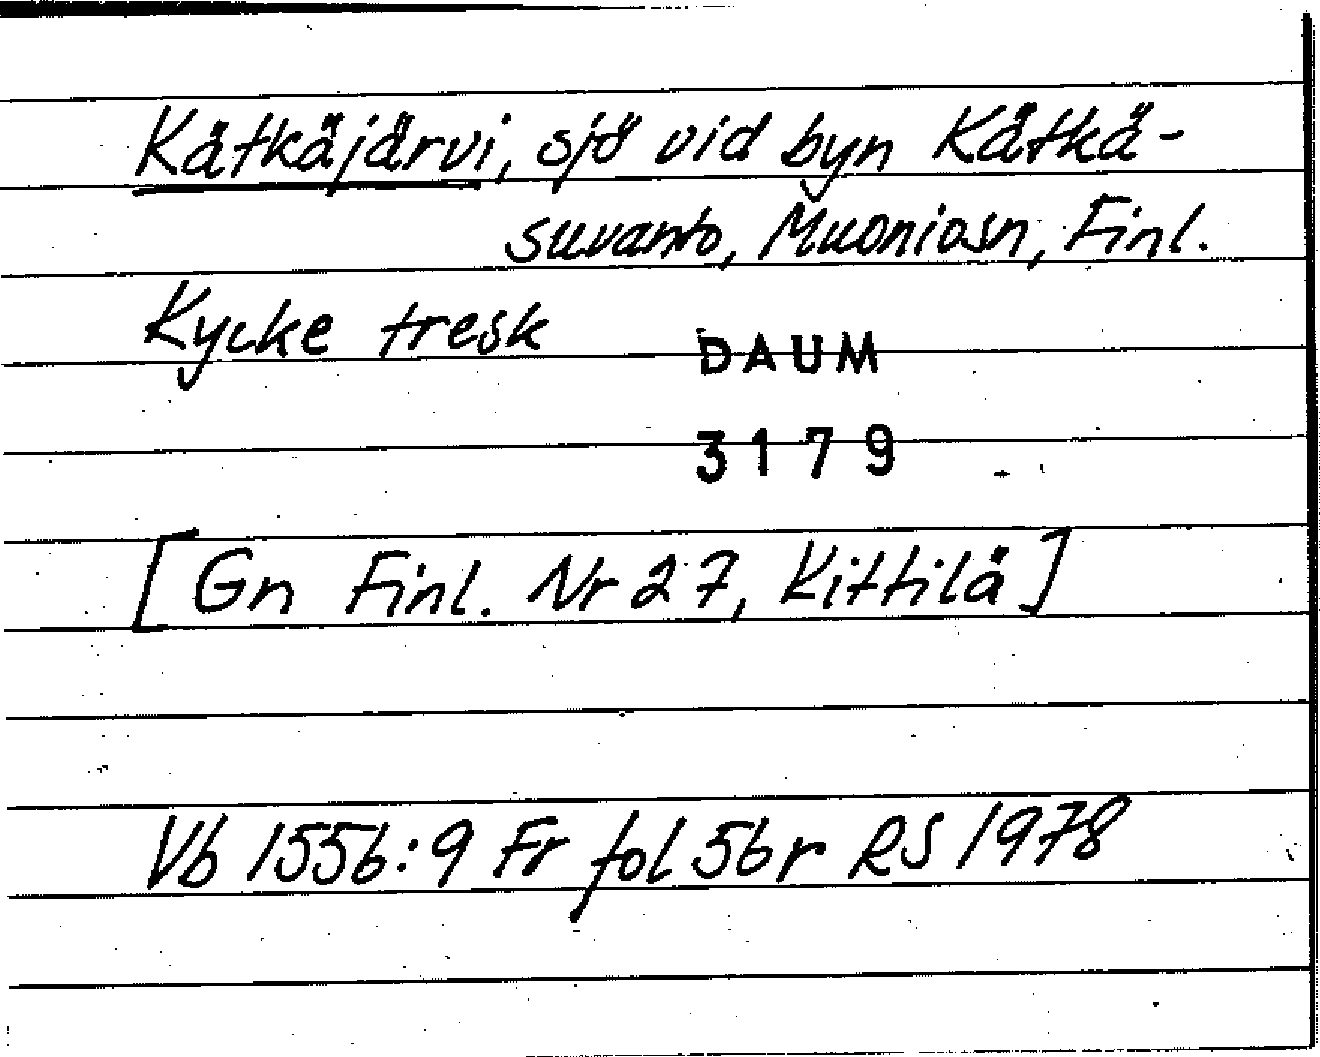 Kätkäjärvi, sjö vid byn Kätkä-
suvanto, Muoniosn, Finl.
Kycke tresk
DAUM
3179
[Gn Finl. Nr 27, Kittilä]
Vb 1556:9 Fr fol 56r RS 1978